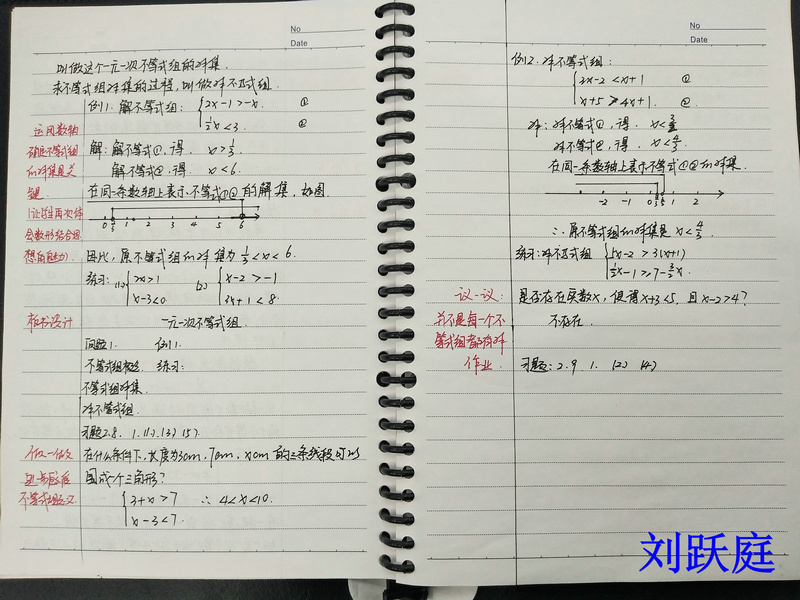 No
Date
叫做这个一元一次不等式组的解集.
求不等式组解集的过程,叫做解不等式组.
例1. 解不等式组: { 2x-1>-x ①
½x<3. ②
运用数轴
确定不等式组
的解集是关
键.
解:解不等式①,得. x>⅓
解不等式②,得. x<6.
在同一条数轴上表示不等式①②的解集,如图.
0 ⅓ 1 2 3 4 5 6
(让学生再次体
会数形结合思
想的魅力).
因此,原不等式组的解集为 ⅓<x<6.
练习: (1) { 2x>1
x-3<0.
(2) { x-2>-1
3x+1<8.
板书设计
一元一次不等式组.
问题1. 例1.
不等式组概念. 练习:
不等式组解集.
解不等式组.
习题2.8. 1.(1).(3).(5).
做一做
在什么条件下,长度为3cm,7cm,xcm的三条线段可以
围成一个三角形?
{ 3+x>7
x-3<7.
∴ 4<x<10.
No
Date
例2. 解不等式组:
{ 3x-2<x+1 ①
x+5>4x+1. ②
解:解不等式①,得. x<3/2
解不等式②,得. x<4/3.
在同一条数轴上表示不等式①②的解集.
-2 -1 0 1 2
∴原不等式组的解集是 x<4/3.
练习:解不等式组 { 5x-2>3(x+1)
½x-1≥7-3/2x.
议一议:
是否存在实数x,使得x+3<5,且x-2>4?
并不是每一个不
等式组都有解
不存在.
作业.
习题:2.9 1. (2) (4)
刘跃庭